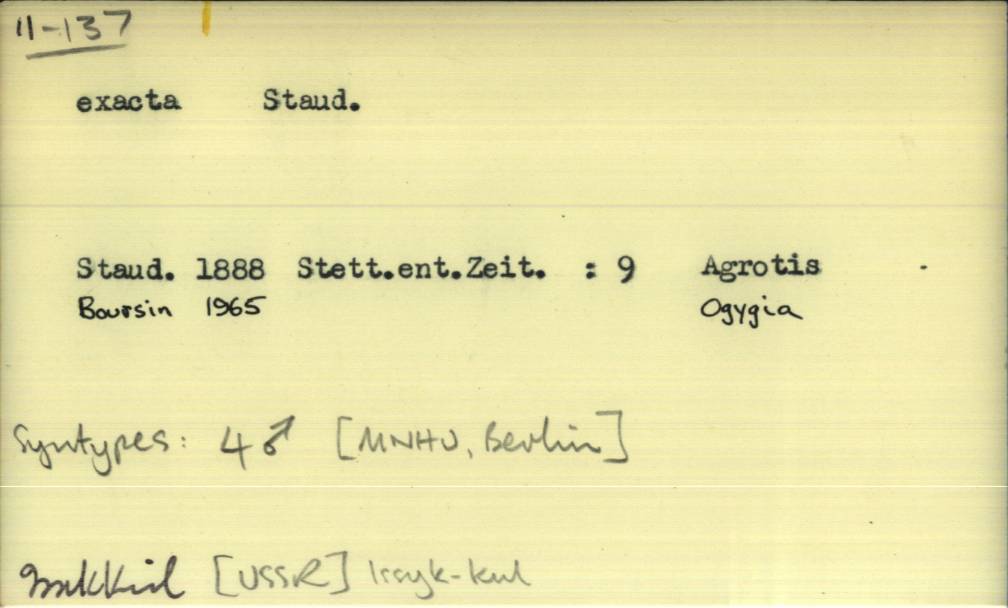 11-137
exacta Staud.
Staud. 1888 Stett.ent.Zeit. : 9 Agrotis
Boursin 1965 Ogygia
Syntypes: 4♂ [MNHU, Berlin]
[USSR] Issyk-kul